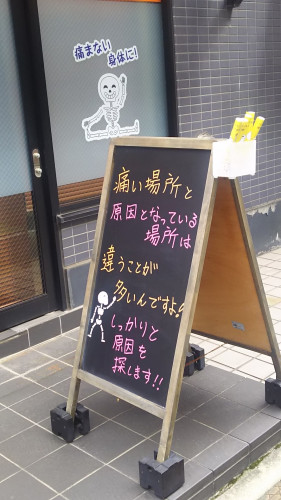 痛まない
身体に!
痛い場所と
原因となっている
場所は
違うことが
多いんですよ?
しっかりと
原因を
探します!!